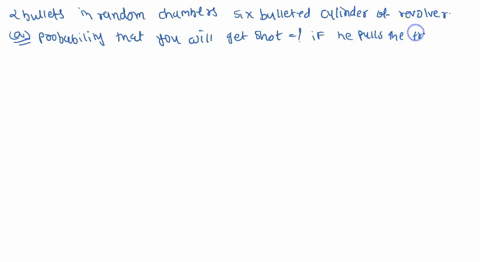 2 bullets in random chambers six bulleted cylinder of revolver.
(a) probability that you will get shot =! if he pulls the tr